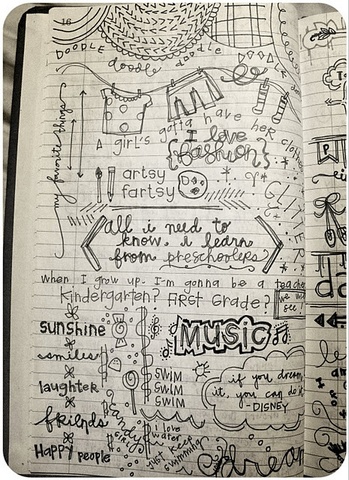 16
DOODLE
doodle
doodle
my favorite things
a girl's gotta have her clothes
I love
{fashion}
artsy
fartsy
GLITTER
all i need to
know, i learn
from preschoolers
when I grow up, I'm gonna be a teacher
Kindergarten? FIRST Grade?
we will
see!
sunshine
smiles
laughter
friends
Happy people
MUSIC
SWIM
SWIM
SWIM
i love
water
just keep
swimming
if you dream
it, you can do it
-DISNEY
dream